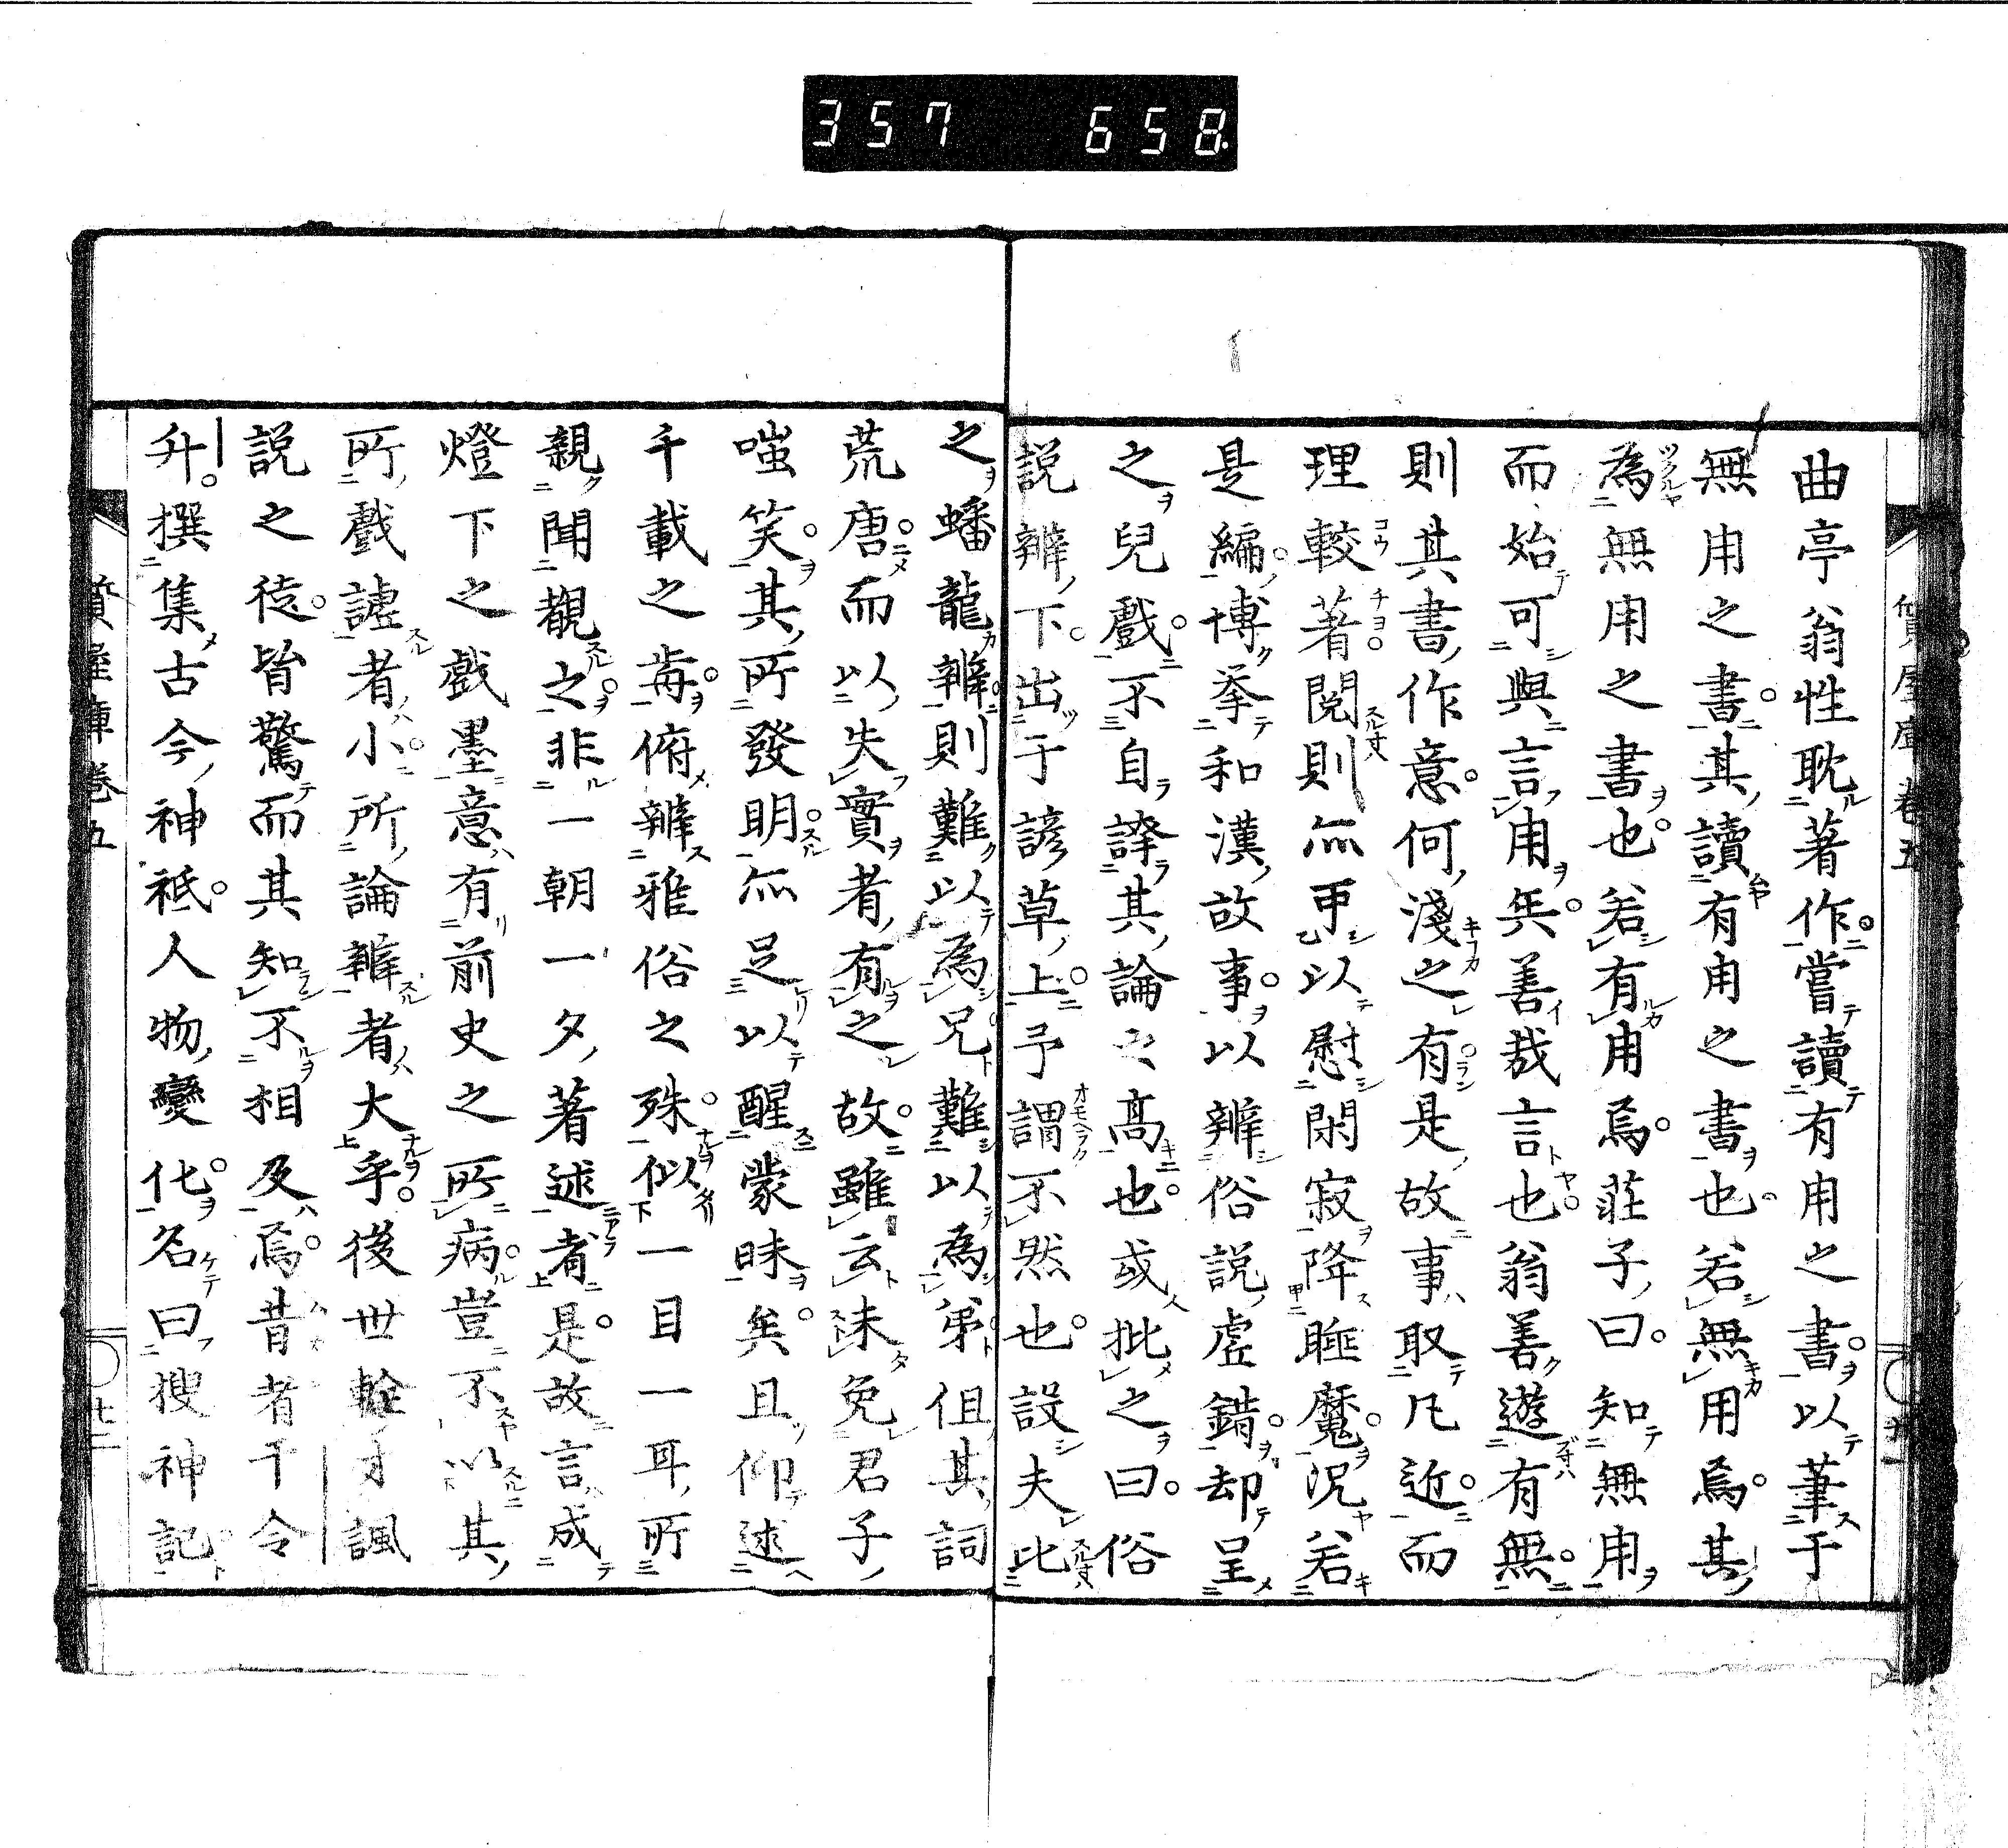 357 658
曲亭翁性耽著作嘗讀有用之書以筆于
無用之書其讀有用之書也若無用焉其
為無用之書也若有用焉莊子曰知無用
而始可與言用矣善哉言也翁善遊有無
則其書作意何淺之有是故事取凡近而
理較著閱則亦可以慰閑寂降睡魔況若
是編博搴和漢故事以辨俗説虛錯却呈
之兒戲不自誇其論之高也或批之曰俗
説辨下出于諺草上予謂不然也設夫比
之蟠龍辨則難以為兄難以為弟但其詞
荒唐而以失實者有之故雖云未免君子
嗤笑其所發明亦足以醒蒙昧矣且仰述
千載之悔俯辨雅俗之殊似一目一耳所
親聞觀之非一朝一夕著述者是故言成
燈下之戲墨意有前史之所病豈不以其
所戲謔者小所論辨者大乎後世輇才諷
説之徒皆驚而其知不相及焉昔者干令
升撰集古今神祇人物變化名曰搜神記
質屋庫卷五